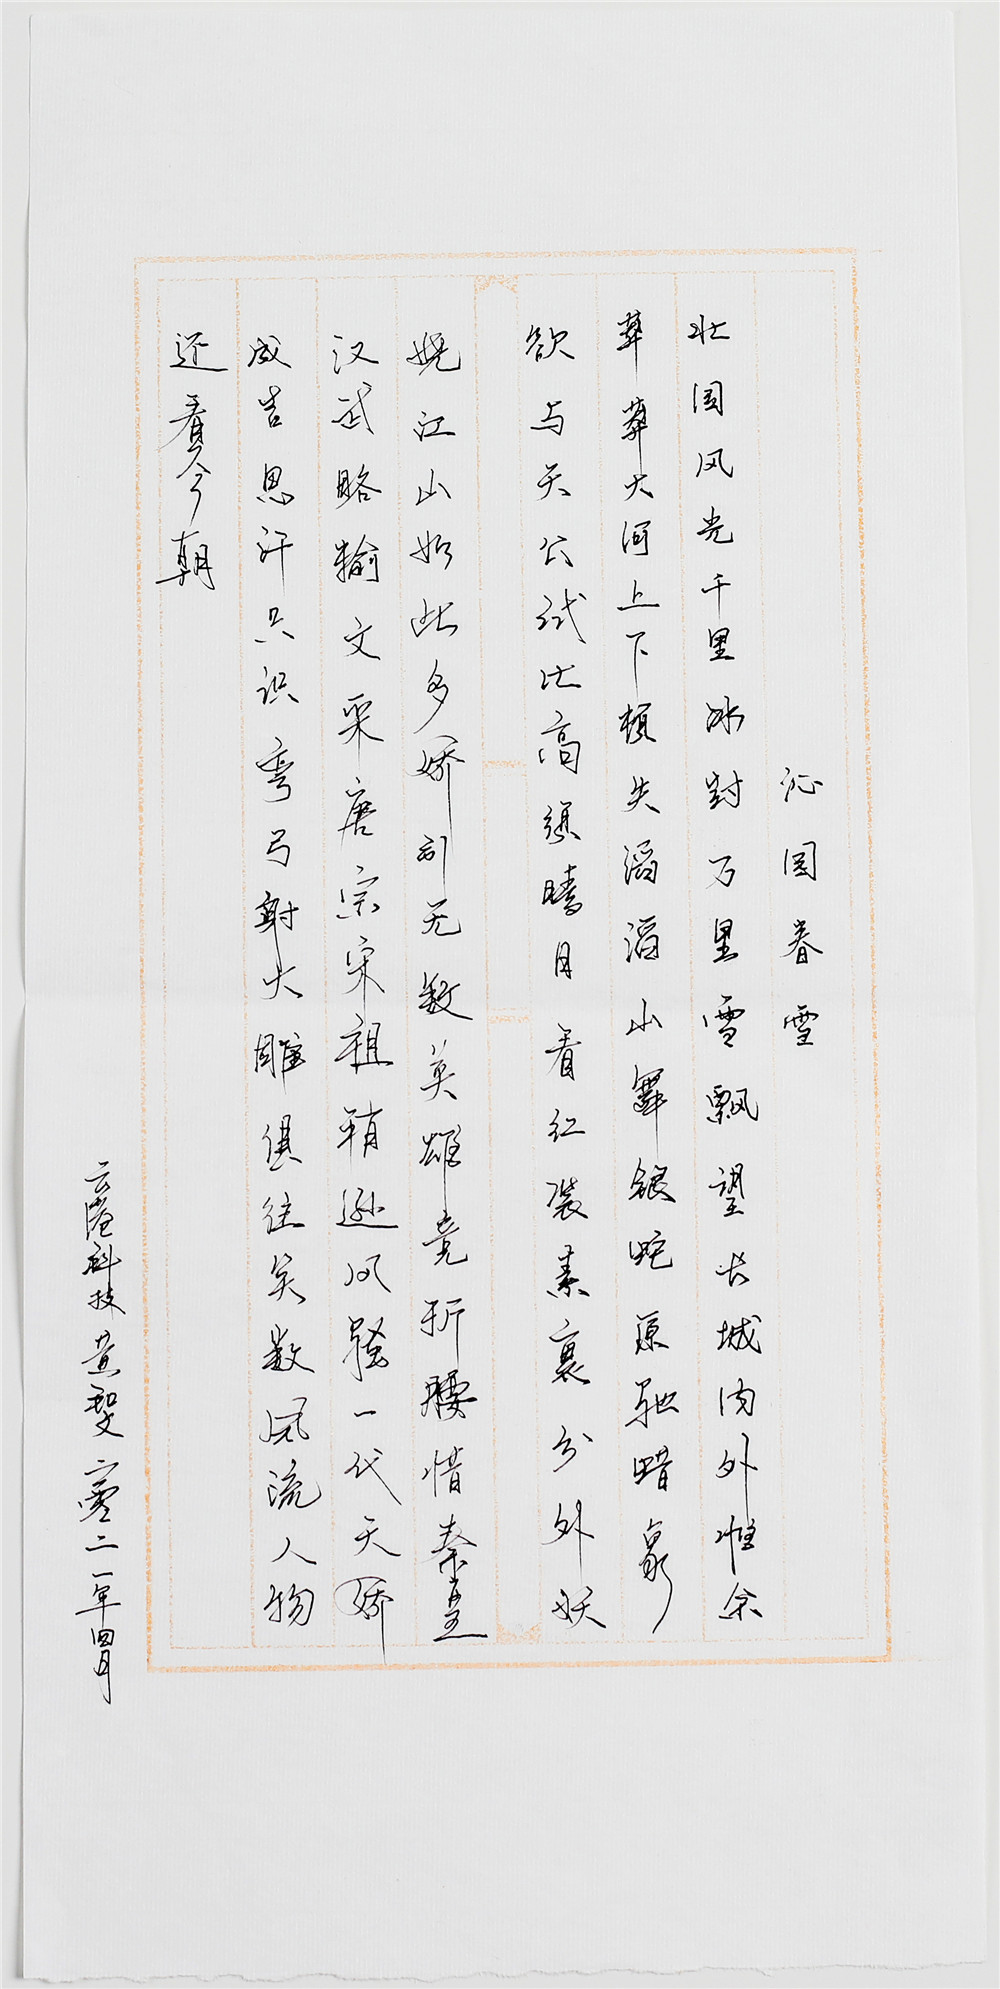 沁园春雪
北国风光千里冰封万里雪飘望长城内外惟余
莽莽大河上下顿失滔滔山舞银蛇原驰蜡象
欲与天公试比高须晴日看红装素裹分外妖
娆江山如此多娇引无数英雄竞折腰惜秦皇
汉武略输文采唐宗宋祖稍逊风骚一代天娇
成吉思汗只识弯弓射大雕俱往矣数风流人物
还看今朝
云港科技黄 二零二一年四月